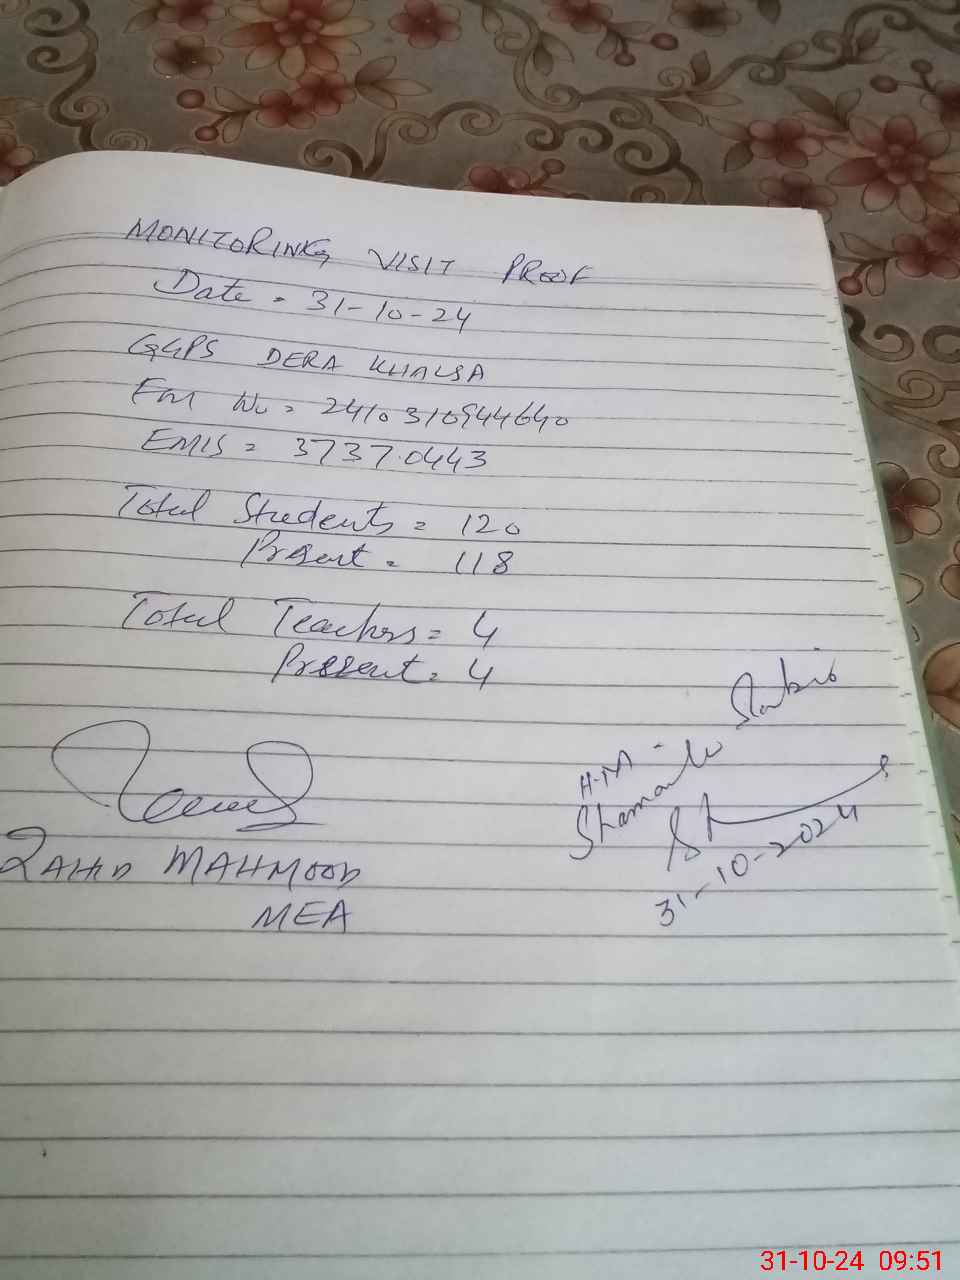 MONITORING VISIT PROOF
Date = 31-10-24
GGPS DERA KHALSA
Em No = 2410310944640
EMIS = 37370443
Total Students = 120
Present = 118
Total Teachers = 4
Present = 4
H.M
31-10-2024
ZAHID MAHMOOD
MEA
31-10-24 09:51